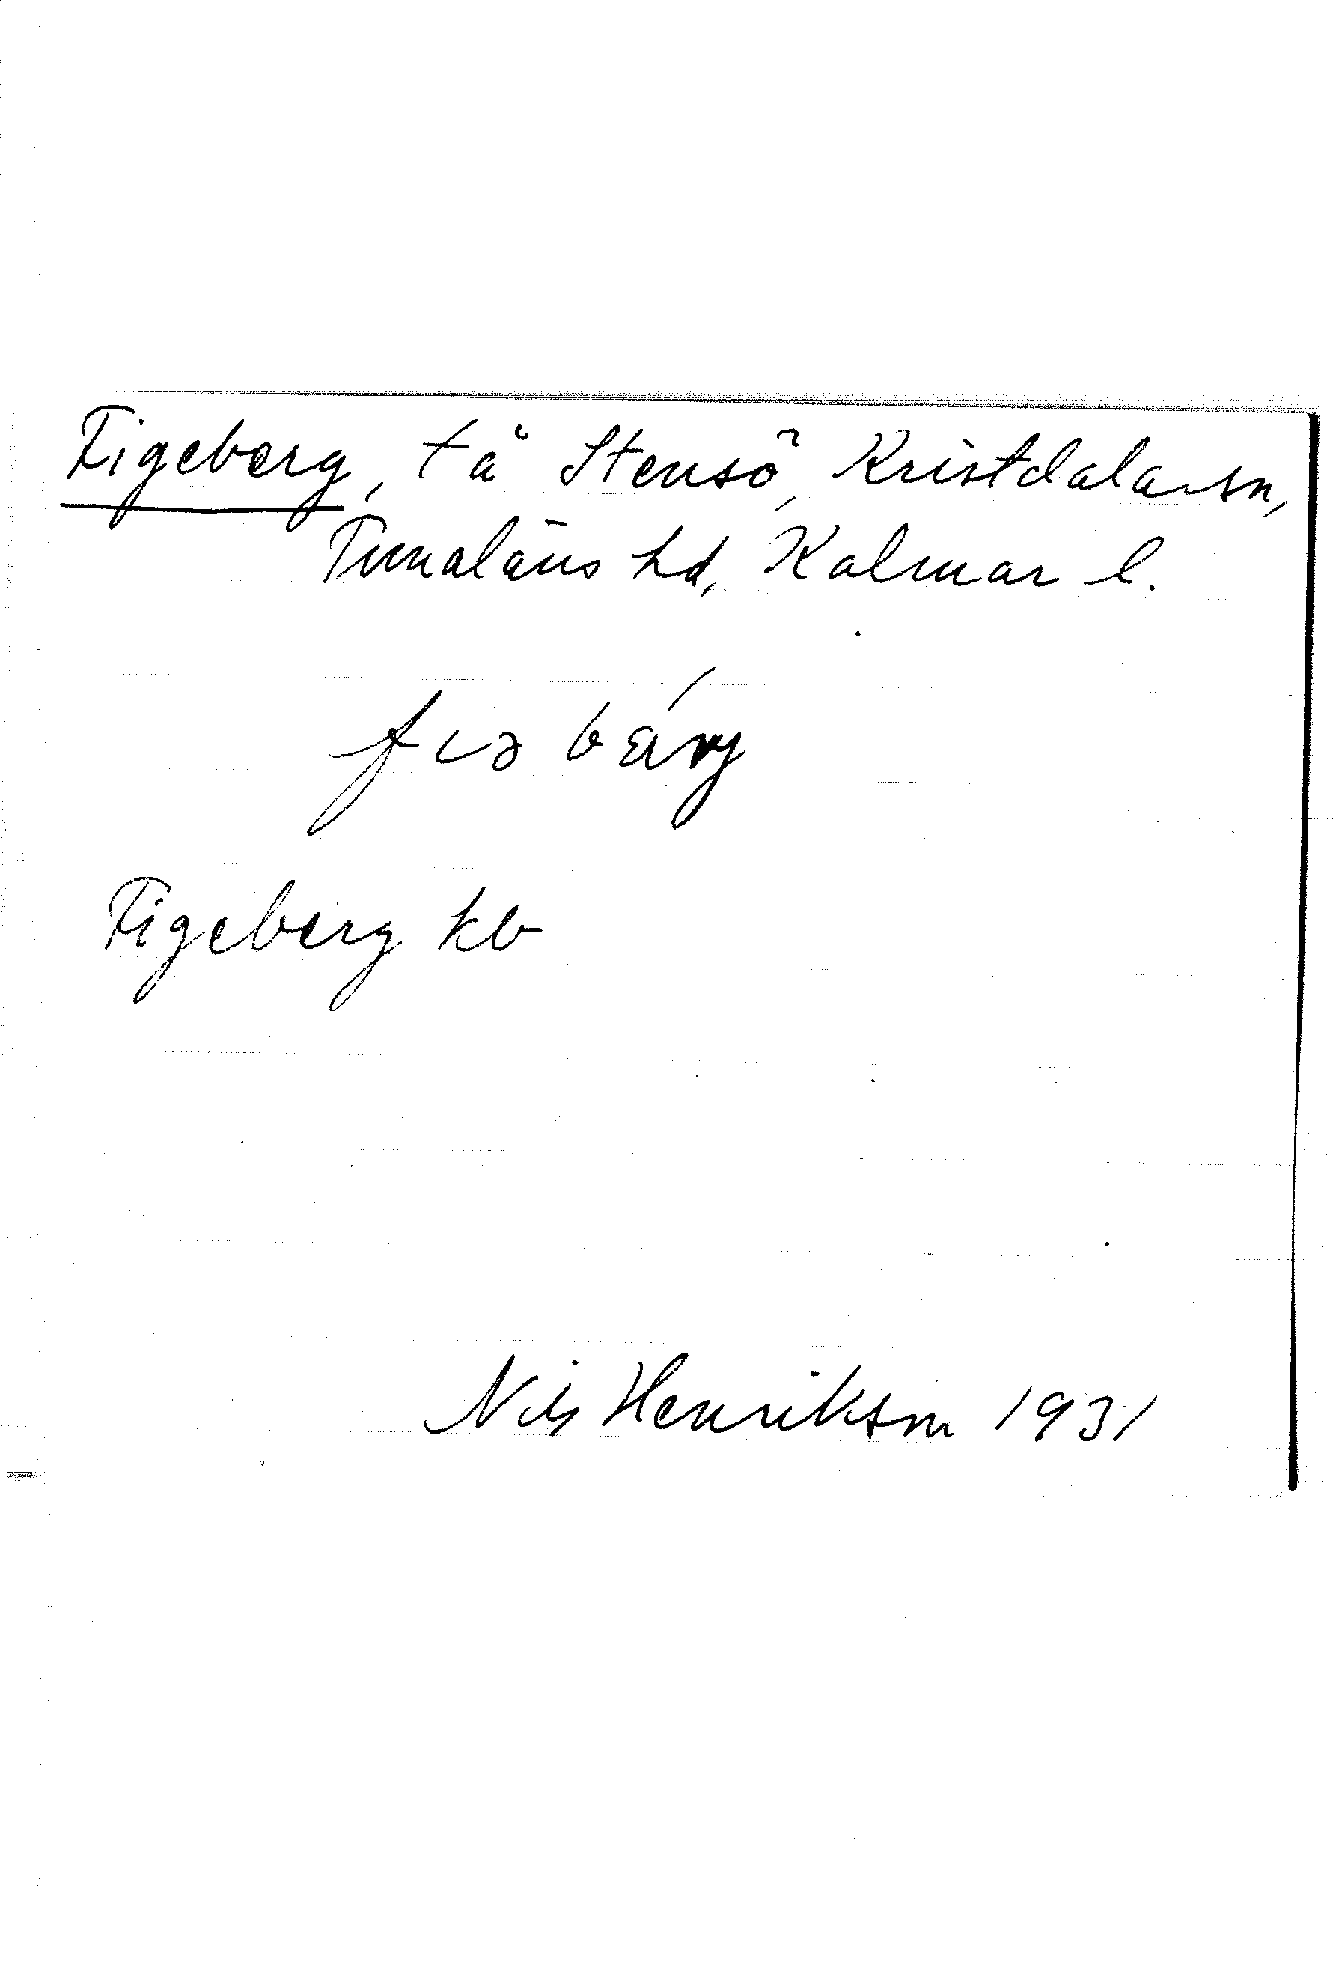 Figeberg, t å Stensö, Kristdala sn,
Tunaläns hd, Kalmar l.
Figeberg kb
Nils Henriksson 1931